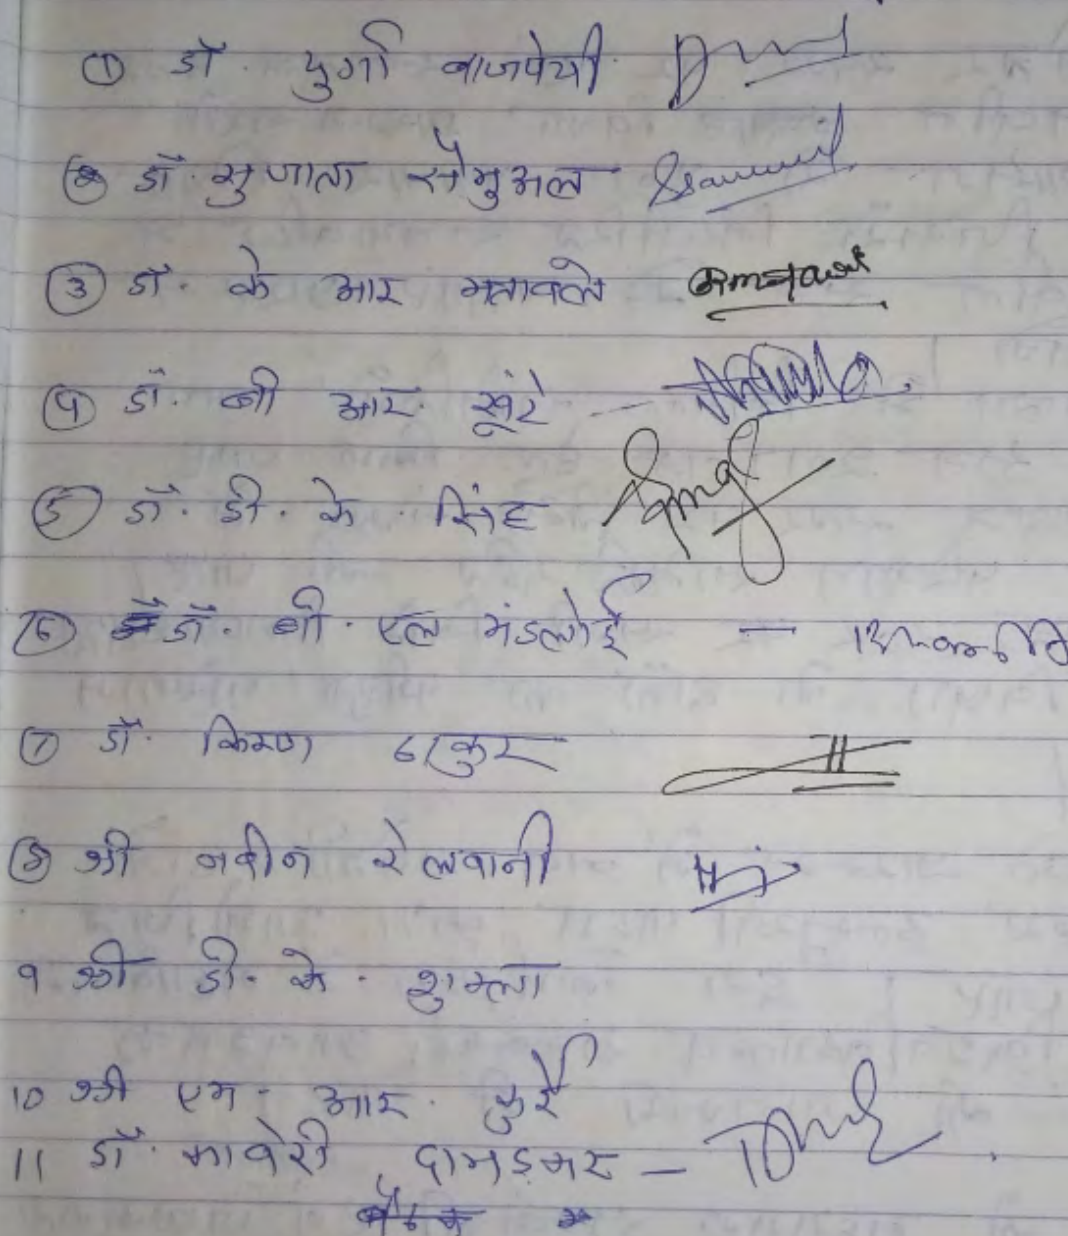 ① डॉ. दुर्गा वाजपेयी
② डॉ. सुजाता सैमुअल Ssamuel
③ डॉ. के आर मतावले
④ डॉ. बी आर. खूंटे —
⑤ डॉ. डी. के. सिंह Singh
⑥ डॉ. बी. एल मंडलोई —
⑦ डॉ. किरण ठाकुर
⑧ श्री नवीन रेलवानी
9 श्री डी. के. शुक्ला
10 श्री एम. आर. कुर्रे
11 डॉ. कावेरी दाभड़कर —